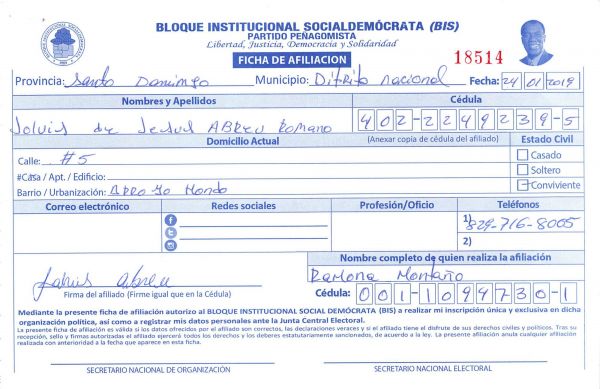 BLOQUE INSTITUCIONAL SOCIALDEMÓCRATA (BIS)
PARTIDO PEÑAGOMISTA
Libertad, Justicia, Democracia y Solidaridad
FICHA DE AFILIACION 18514
Provincia: Santo Domingo Municipio: Ditrito nacional Fecha: 24 01 2019
Nombres y Apellidos Cédula
de Jesus ABReu Romano 402-2249239-5
Domicilio Actual (Anexar copia de cédula del afiliado) Estado Civil
Calle: #5 Casado
#Casa / Apt. / Edificio: Soltero
Barrio / Urbanización: ARRoyo Hondo Conviviente
Correo electrónico Redes sociales Profesión/Oficio Teléfonos
1) 829-716-8005
2)
Nombre completo de quien realiza la afiliación
Ramona Montaño
Firma del afiliado (Firme igual que en la Cédula) Cédula: 001-1094730-1
Mediante la presente ficha de afiliación autorizo al BLOQUE INSTITUCIONAL SOCIAL DEMÓCRATA (BIS) a realizar mi inscripción única y exclusiva en dicha
organización política, así como a registrar mis datos personales ante la Junta Central Electoral.
La presente ficha de afiliación es válida si los datos ofrecidos por el afiliado son correctos, las declaraciones veraces y si el afiliado tiene el disfrute de sus derechos civiles y políticos. Tras su
recepción, sello y firmas autorizadas el afiliado ejercerá todos los derechos y los deberes estatutariamente sancionados, de acuerdo a la ley. La presente afiliación anula cualquier afiliación
realizada con anterioridad a la fecha que aparece en esta ficha.
SECRETARIO NACIONAL DE ORGANIZACIÓN SECRETARIO NACIONAL ELECTORAL